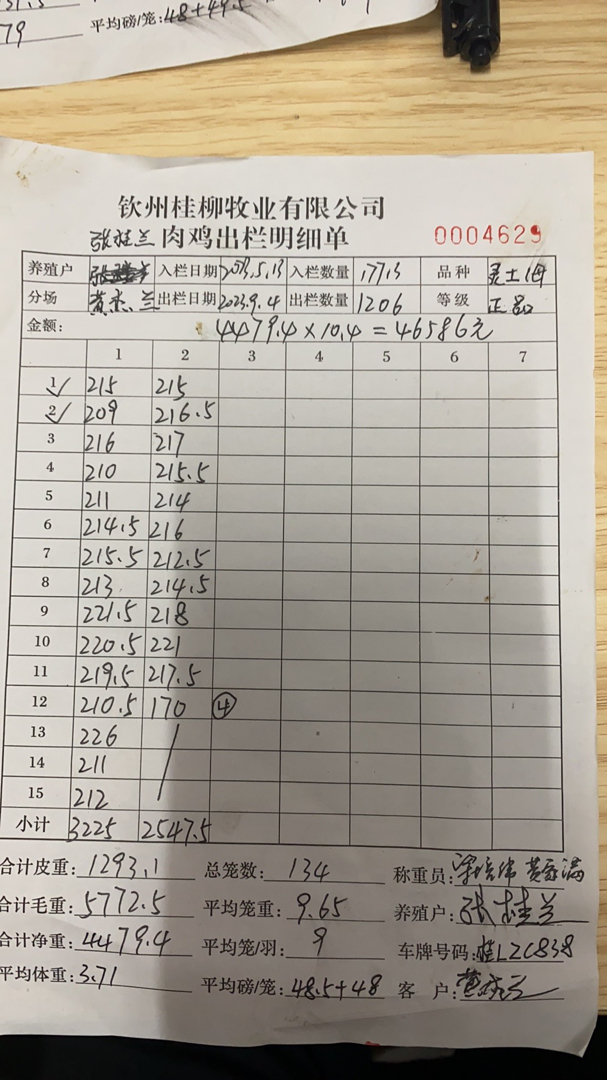 79 平均磅/笼:48+49.5
钦州桂柳牧业有限公司
张桂兰 肉鸡出栏明细单 0004629
养殖户 入栏日期 2023.5.13 入栏数量 1713 品种 灵土1号
分场 出栏日期 2023.9.4 出栏数量 1206 等级 正品
金额: 4479.4×10.4=46586元
1 2 3 4 5 6 7
1 ✓ 215 215
2 ✓ 209 216.5
3 216 217
4 210 215.5
5 211 214
6 214.5 216
7 215.5 212.5
8 213 214.5
9 221.5 218
10 220.5 221
11 219.5 217.5
12 210.5 170 ④
13 226
14 211
15 212
小计 3225 2547.5
合计皮重:1293.1 总笼数:134 称重员:
合计毛重:5772.5 平均笼重:9.65 养殖户:张桂兰
合计净重:4479.4 平均笼/羽:9 车牌号码:桂LZC838
平均体重:3.71 平均磅/笼:48.5+48 客户: